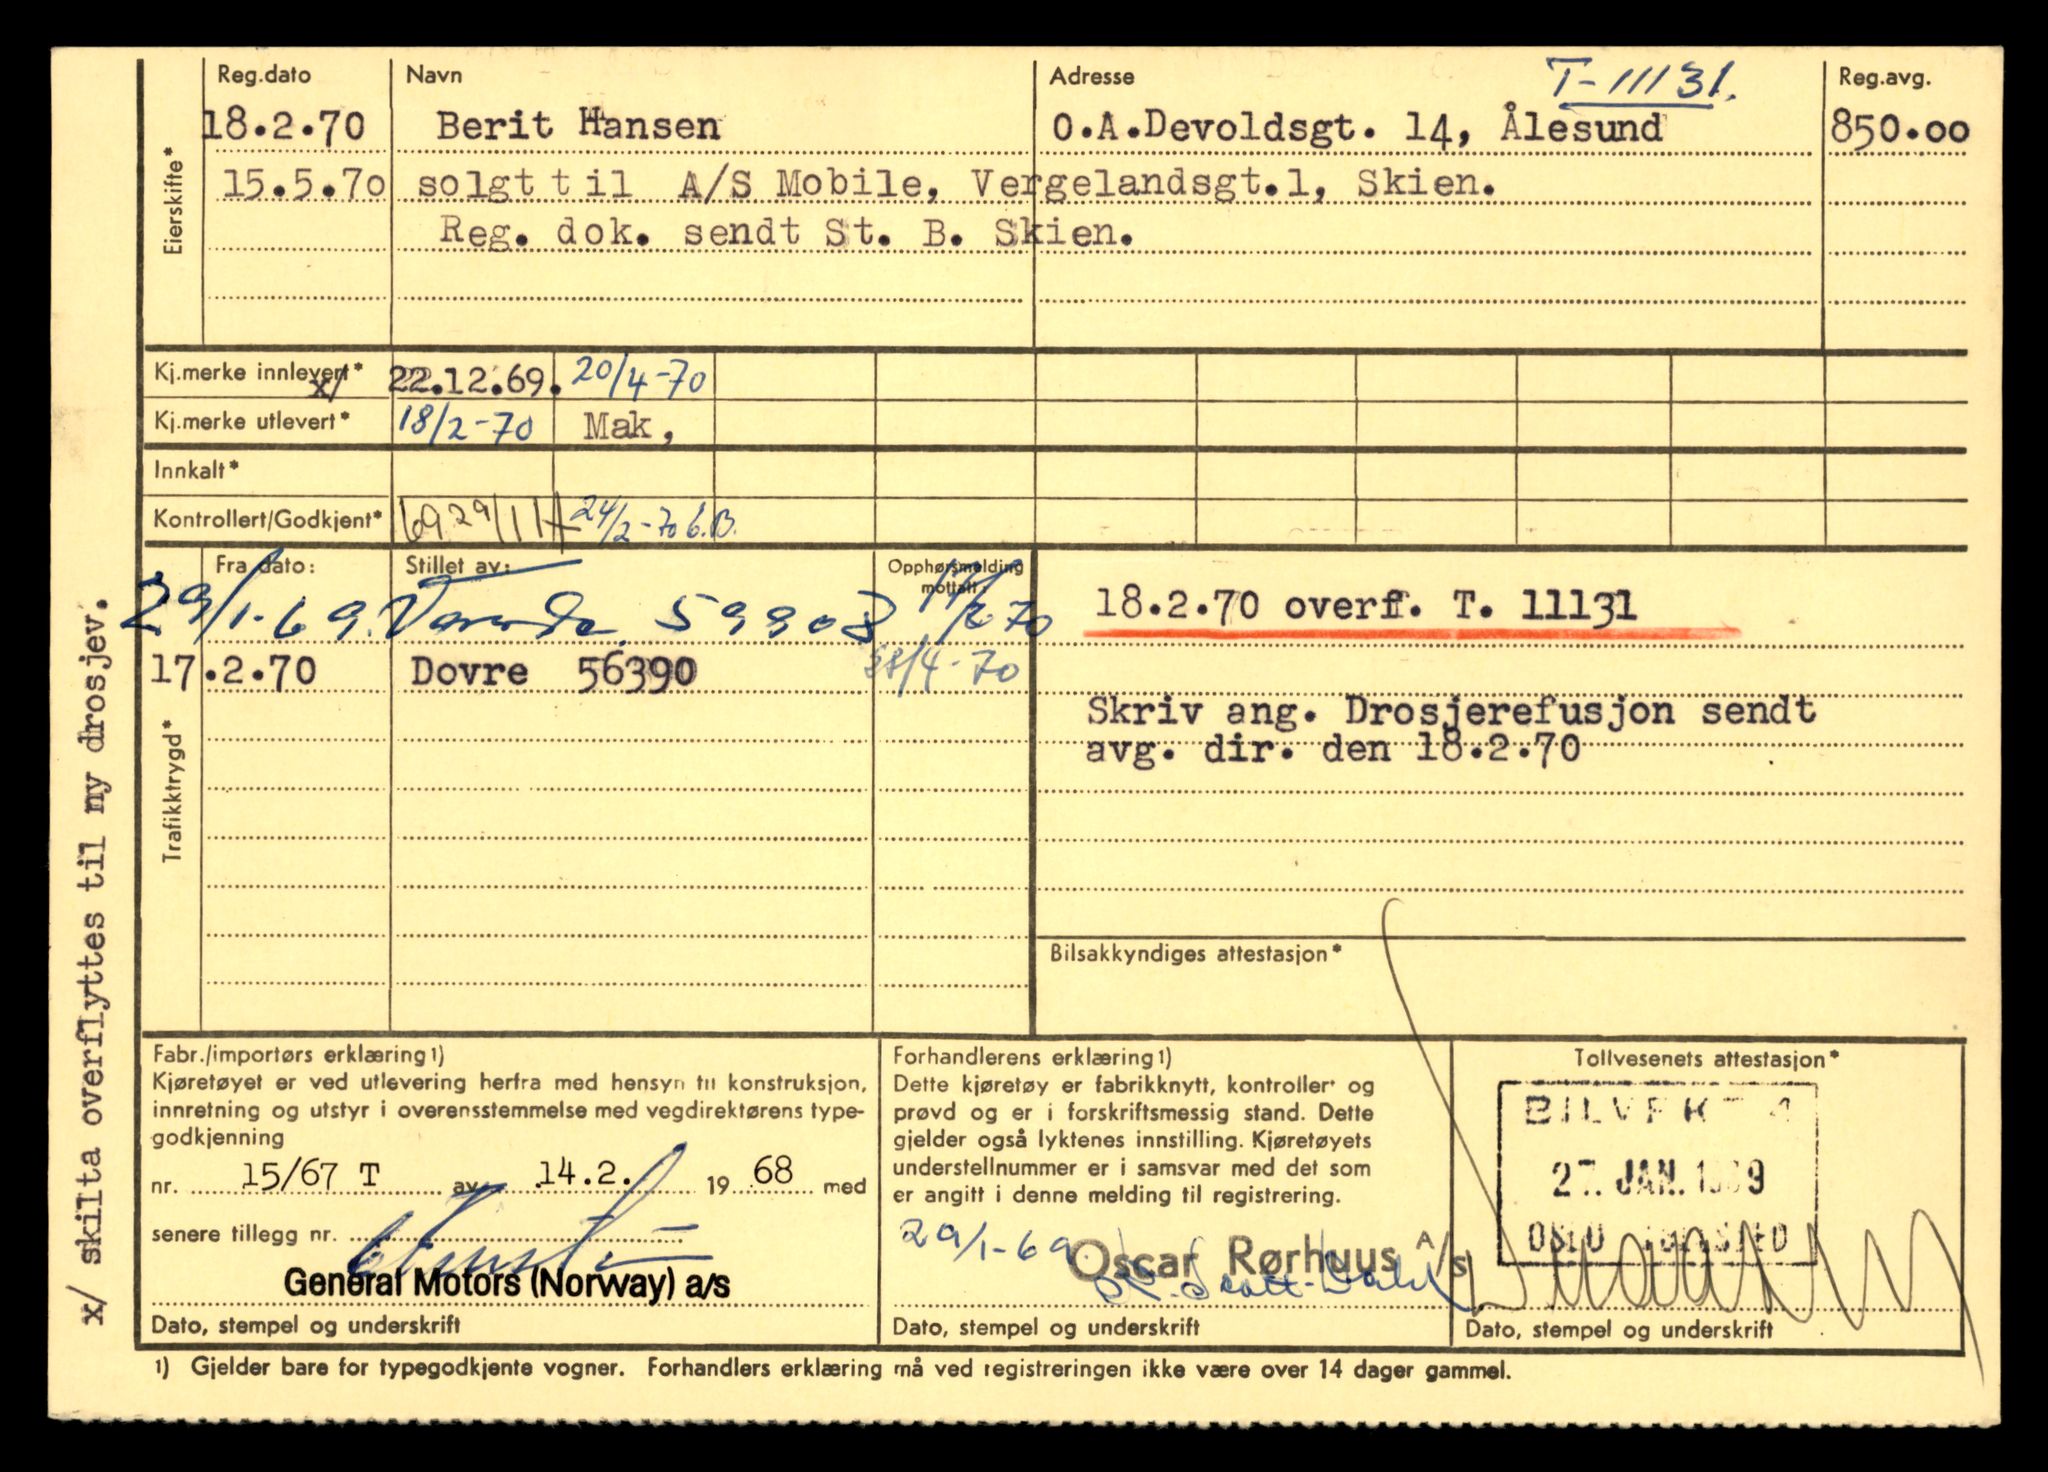 Reg.dato Navn Adresse T-11131. Reg.avg.
18.2.70 Berit Hansen O.A.Devoldsgt. 14, Ålesund 850.00
15.5.70 solgt til A/S Mobile, Vergelandsgt.1, Skien.
Reg. dok. sendt St. B. Skien.
Eierskifte*
Kj.merke innlevert* x/ 22.12.69. 20/4-70
Kj.merke utlevert* 18/2-70 Mak,
Innkalt*
Kontrollert/Godkjent* 24/2-70
Fra dato: Stillet av: Opphørsmelding mottatt:
29/1-69. 59908
17.2.70 Dovre 56390 /4-70
Trafikktrygd*
18.2.70 overf. T. 11131
Skriv ang. Drosjerefusjon sendt
avg. dir. den 18.2.70
Bilsakkyndiges attestasjon*
x/ skilta overflyttes til ny drosjev.
Fabr./importørs erklæring1)
Kjøretøyet er ved utlevering herfra med hensyn til konstruksjon,
innretning og utstyr i overensstemmelse med vegdirektørens type-
godkjenning
nr. 15/67 T av 14.2. 19 68 med
senere tillegg nr.
General Motors (Norway) a/s
Dato, stempel og underskrift
Forhandlerens erklæring1)
Dette kjøretøy er fabrikknytt, kontrollert og
prøvd og er i forskriftsmessig stand. Dette
gjelder også lyktenes innstilling. Kjøretøyets
understellnummer er i samsvar med det som
er angitt i denne melding til registrering.
29/1-69 Oscar Rørhuus A/s
Dato, stempel og underskrift
Tollvesenets attestasjon*
27. JAN. 1969
OSLO
Dato, stempel og underskrift
1) Gjelder bare for typegodkjente vogner. Forhandlers erklæring må ved registreringen ikke være over 14 dager gammel.